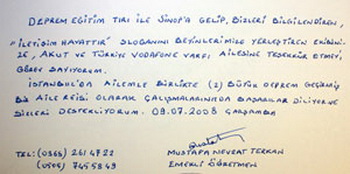 DEPREM EĞİTİM TIRI İLE SİNOP'A GELİP, BİZLERİ BİLGİLENDİREN,
"İLETİŞİM HAYATTIR" SLOGANINI BEYİNLERİMİZE YERLEŞTİREN EKİBİNİ-
ZE, AKUT VE TÜRKİYE VODAFONE VAKFI AİLESİNE TEŞEKKÜR ETMEYİ,
GÖREV SAYIYORUM.
İSTANBUL'DA AİLEMLE BİRLİKTE (2) BÜYÜK DEPREM GEÇİRMİŞ
BİR AİLE REİSİ OLARAK ÇALIŞMALARINIZDA BAŞARILAR DİLİYOR VE
SİZLERİ DESTEKLİYORUM. 09.07.2008 ÇARŞAMBA
TEL: (0368) 261 47 22 MUSTAFA NEVZAT TERKAN
(0505) 745 58 49 EMEKLİ ÖĞRETMEN